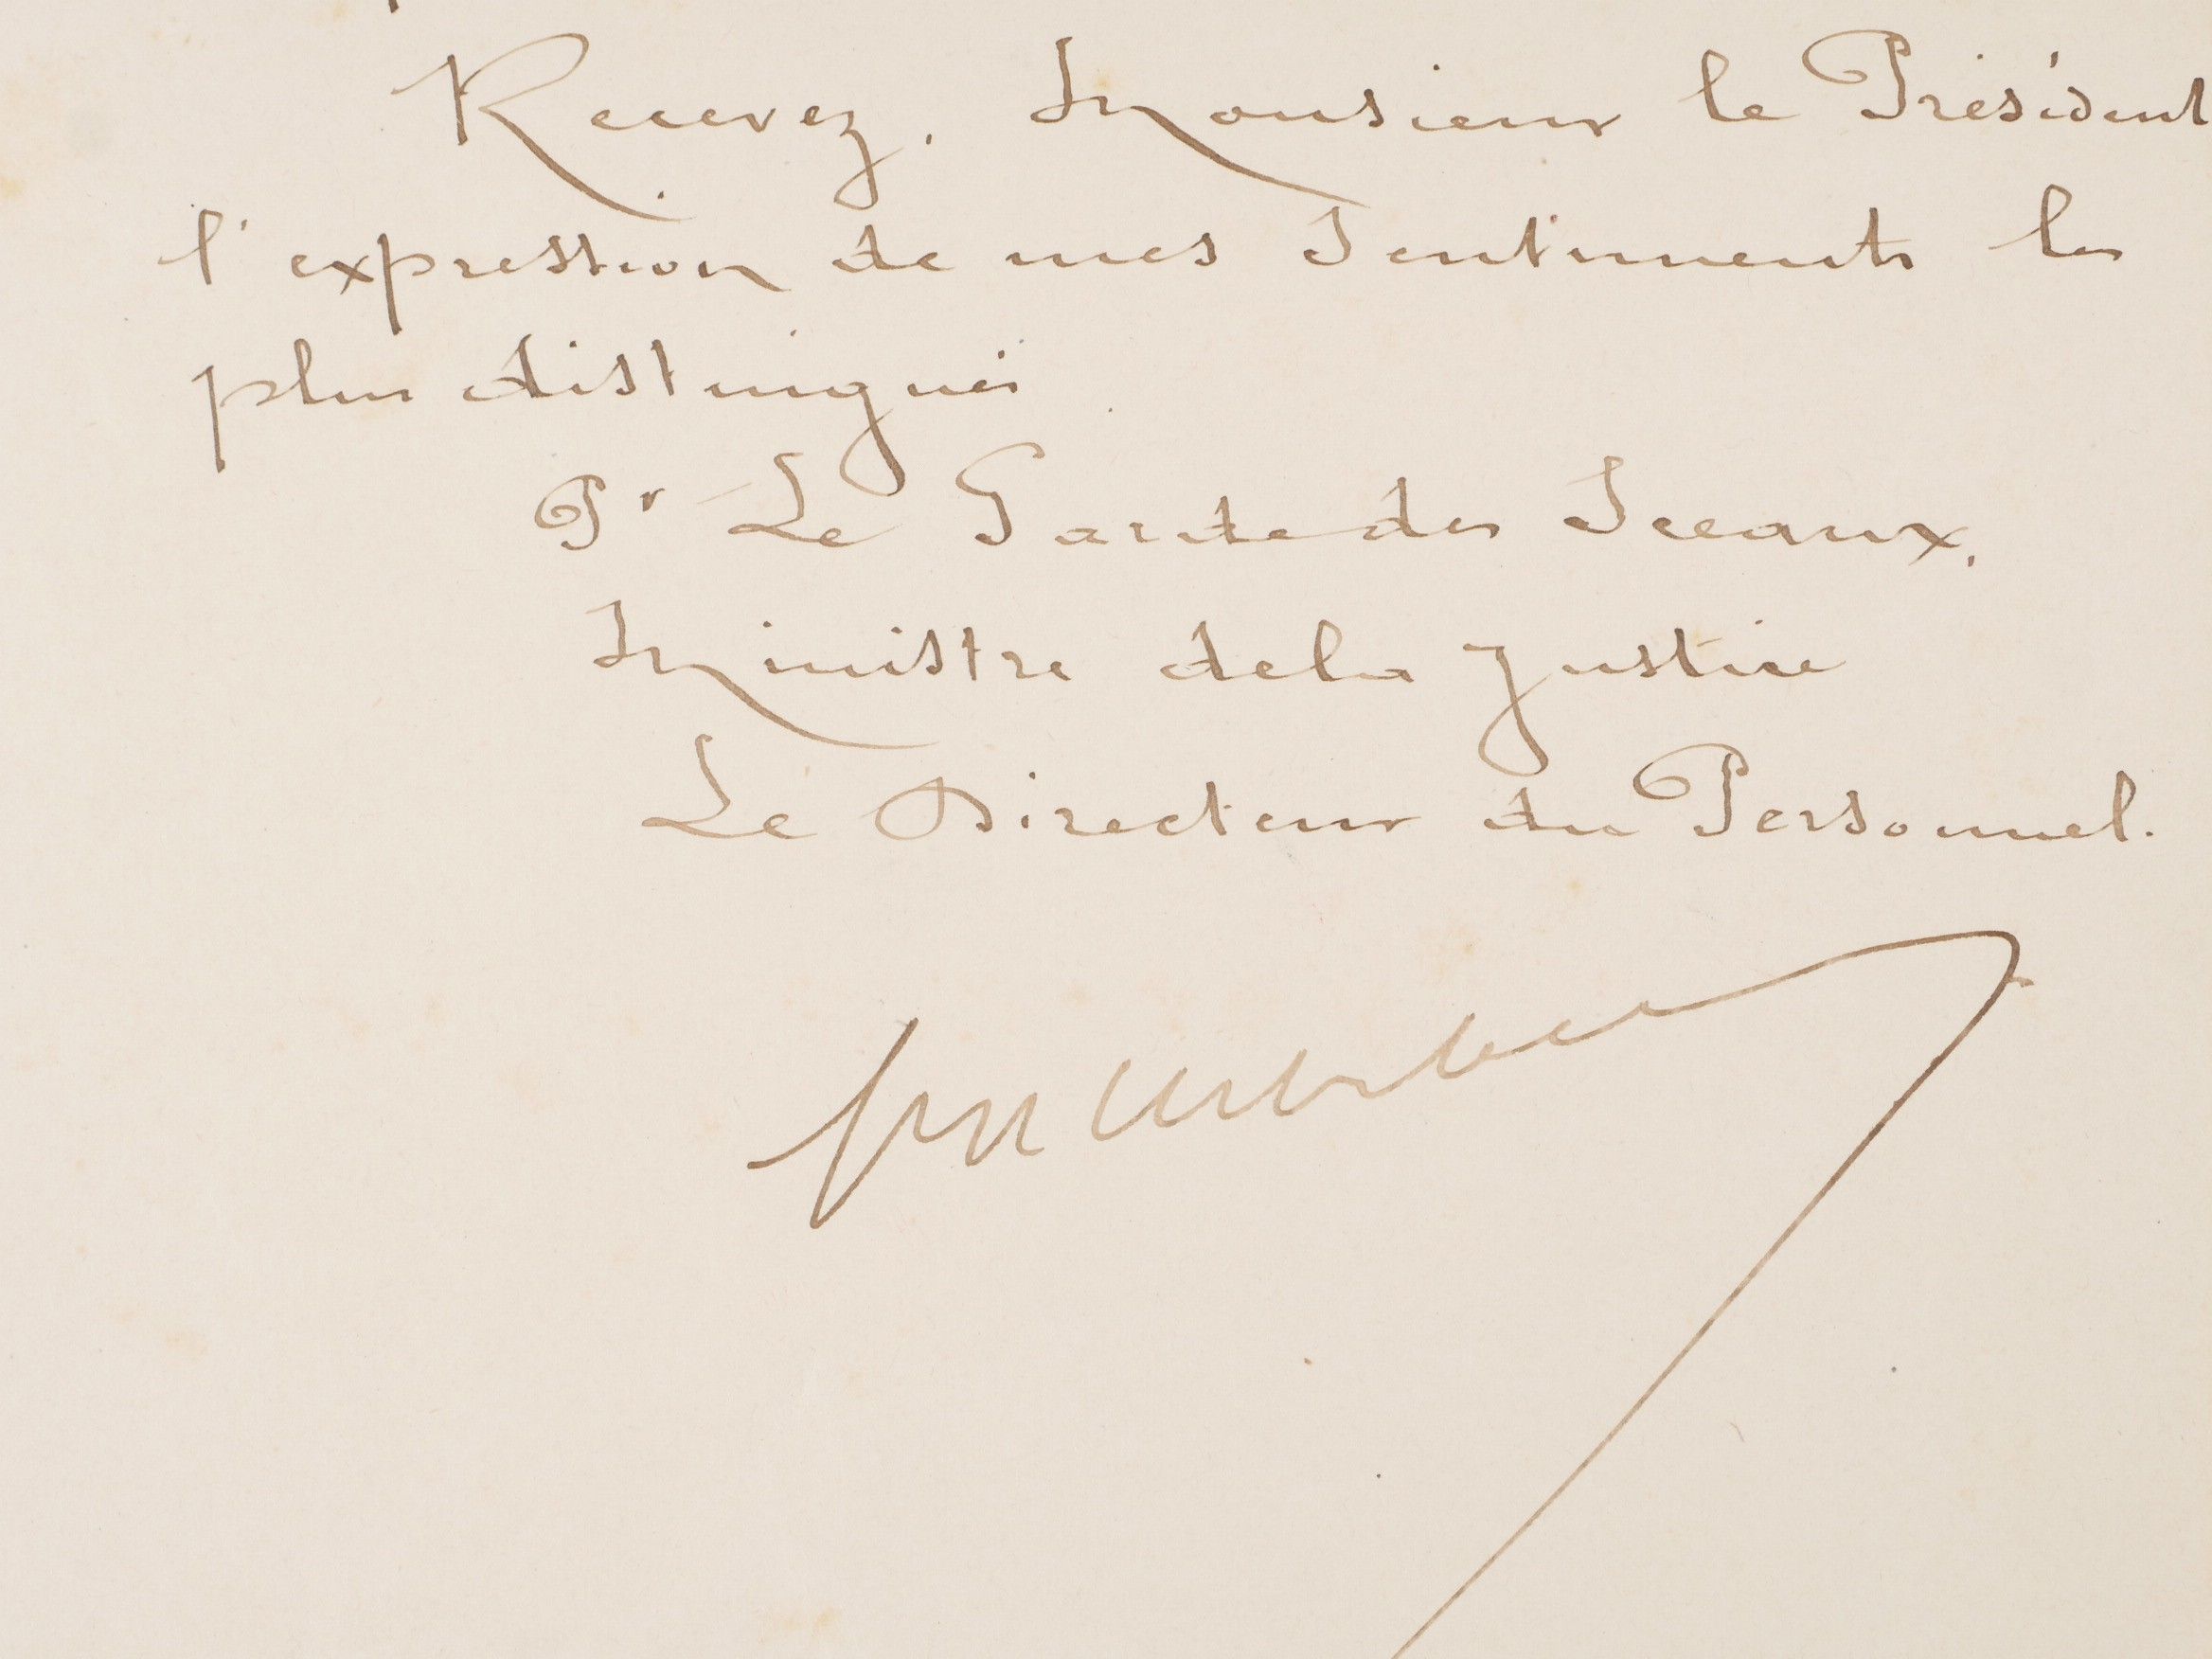 Recevez, Monsieur le Président
l'expression de mes sentiments les
plus distingués
Pr Le Garde des Sceaux,
Ministre de la Justice
Le Directeur du Personnel.